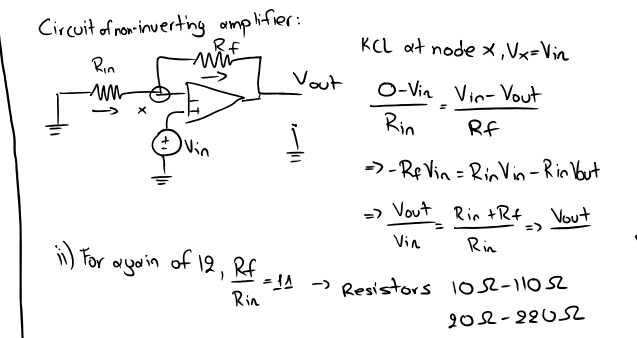 Circuit of non-inverting amplifier:
Rf
Rin
x
Vout
Vin
KCL at node x, Vx=Vin
0-Vin / Rin = Vin-Vout / Rf
=> -RfVin = RinVin - RinVout
=> Vout / Vin = Rin+Rf / Rin => Vout
ii) For again of 12, Rf / Rin = 11 → Resistors 10Ω-110Ω
20Ω-220Ω